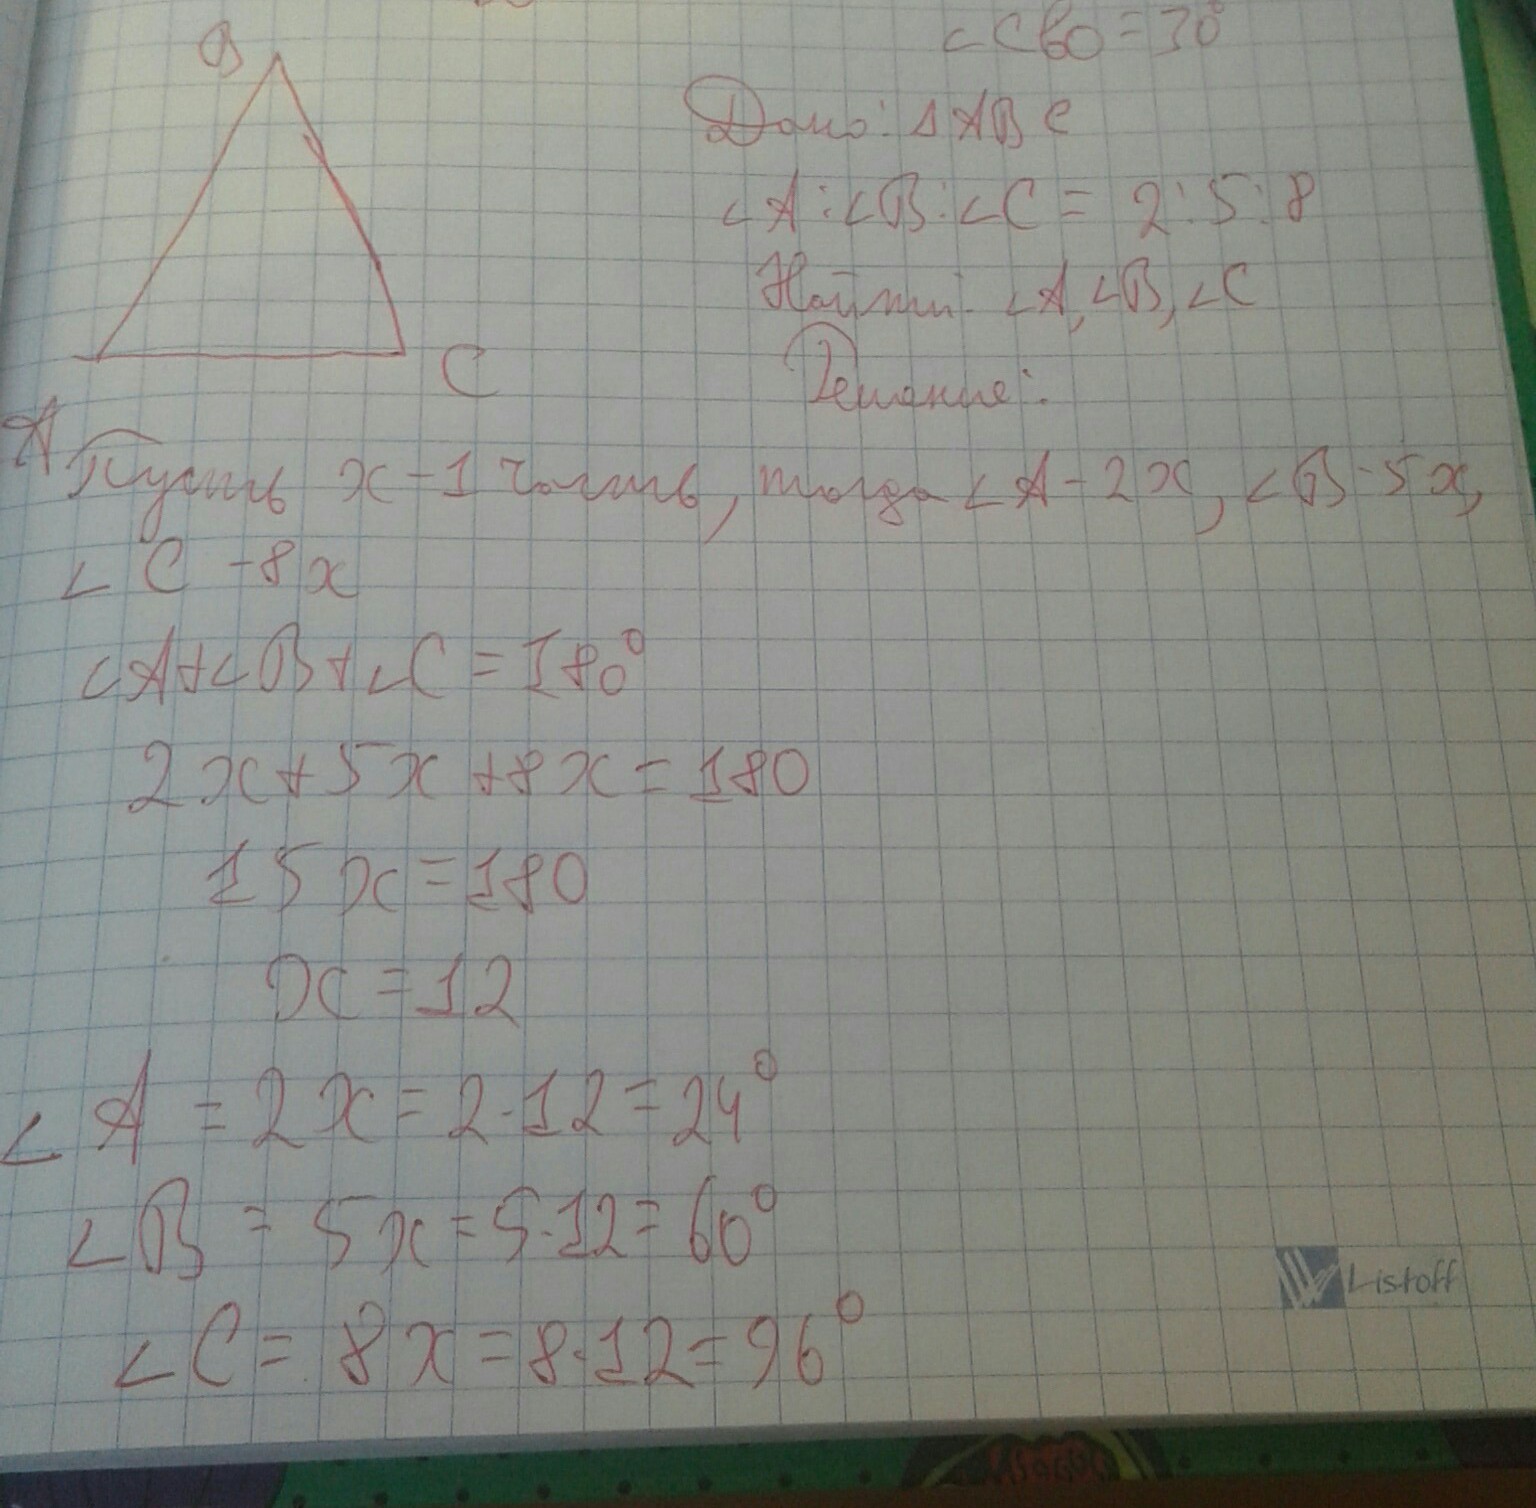 ∠CBO = 30°
B
Дано: ΔABC
∠A:∠B:∠C = 2:5:8
Найти: ∠A, ∠B, ∠C
C
Решение:
A
Пусть x - 1 часть, тогда ∠A - 2x, ∠B - 5x,
∠C - 8x
∠A+∠B+∠C = 180°
2x+5x+8x = 180
15x = 180
x = 12
∠A = 2x = 2·12 = 24°
∠B = 5x = 5·12 = 60°
Listoff
∠C = 8x = 8·12 = 96°